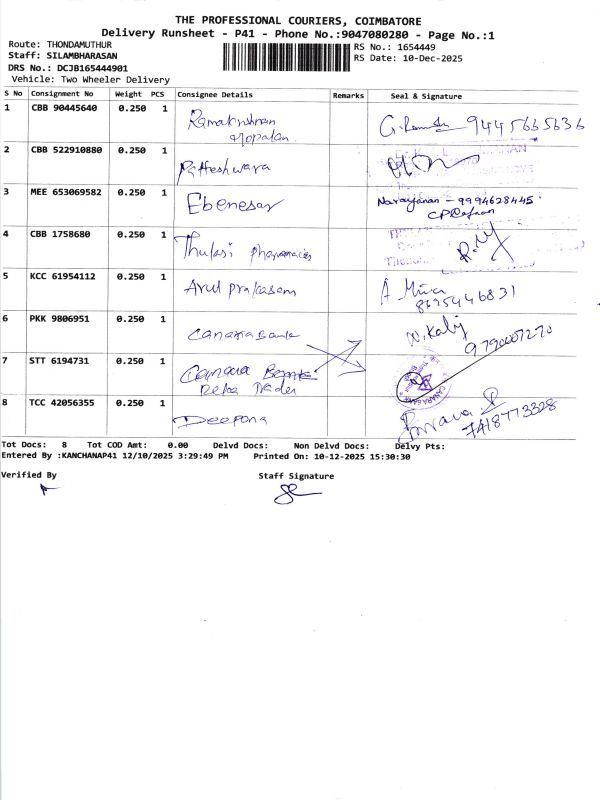 THE PROFESSIONAL COURIERS, COIMBATORE
Delivery Runsheet - P41 - Phone No.:9047080280 - Page No.:1
Route: THONDAMUTHUR
RS No.: 1654449
Staff: SILAMBHARASAN
RS Date: 10-Dec-2025
DRS No.: DCJB165444901
Vehicle: Two Wheeler Delivery
S No Consignment No Weight PCS Consignee Details Remarks Seal & Signature
1 CBB 90445640 0.250 1 Ramakrishnan 9445665636
Gopalan
2 CBB 522910880 0.250 1
3 MEE 653069582 0.250 1 Ebenesar Narayanan - 9994628445
4 CBB 1758680 0.250 1 Thulasi pharmacies
5 KCC 61954112 0.250 1 Arul prakasam
8675446831
6 PKK 9806951 0.250 1 Canara Bank
9790007270
7 STT 6194731 0.250 1 Canara Bank
CANARA BANK
8 TCC 42056355 0.250 1 Deepana
7418773328
Tot Docs: 8 Tot COD Amt: 0.00 Delvd Docs: Non Delvd Docs: Delvy Pts:
Entered By :KANCHANAP41 12/10/2025 3:29:49 PM Printed On: 10-12-2025 15:30:30
Verified By Staff Signature